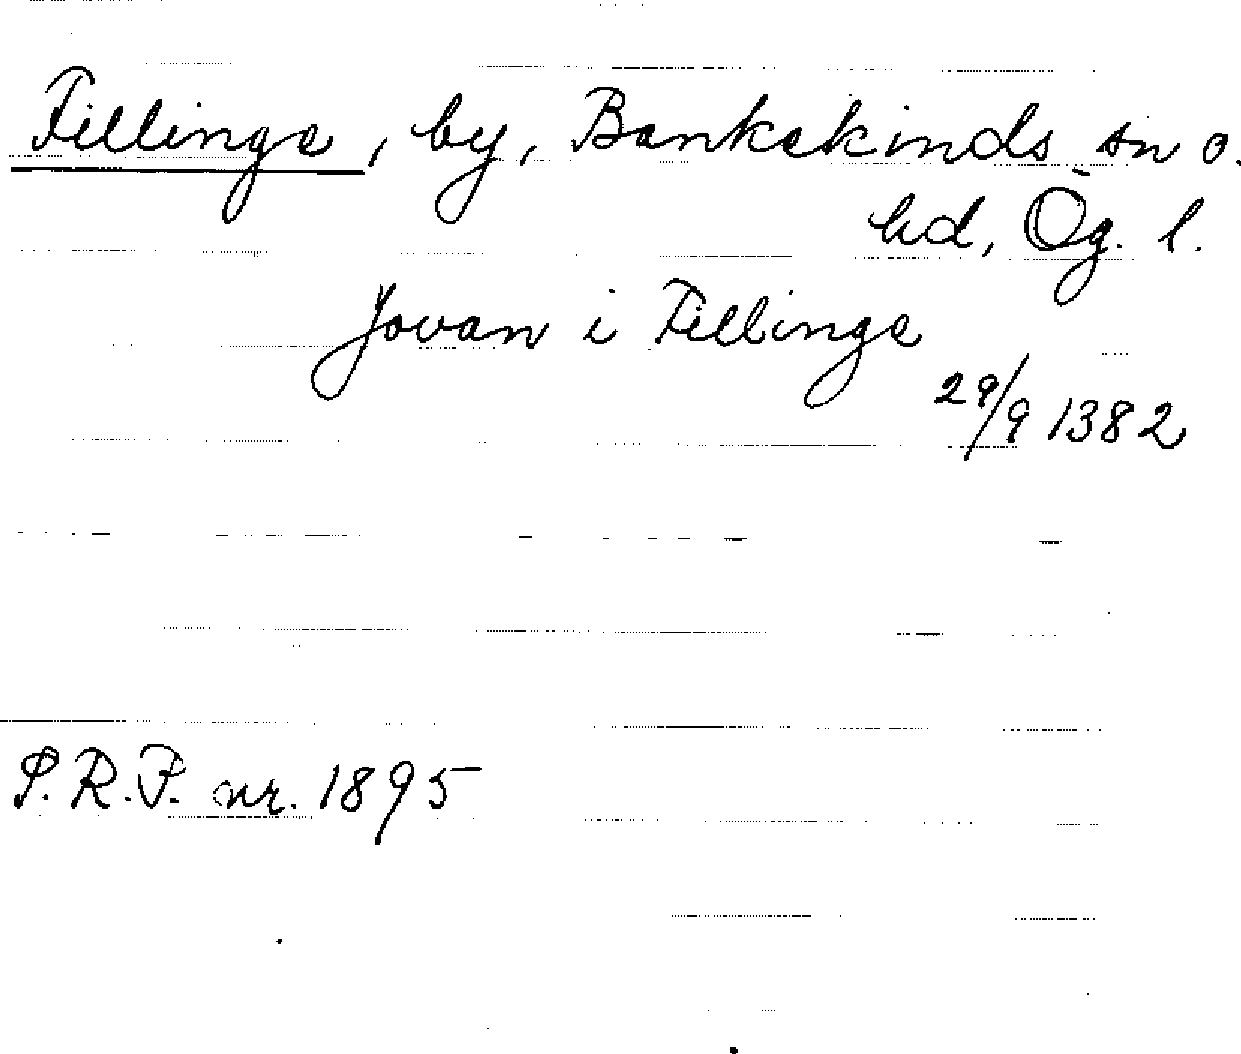 Fillinge, by, Bankekinds sn o.
hd, Ög. l.
Jovan i Fillinge
29/9 1382
S.R.P. nr. 1895